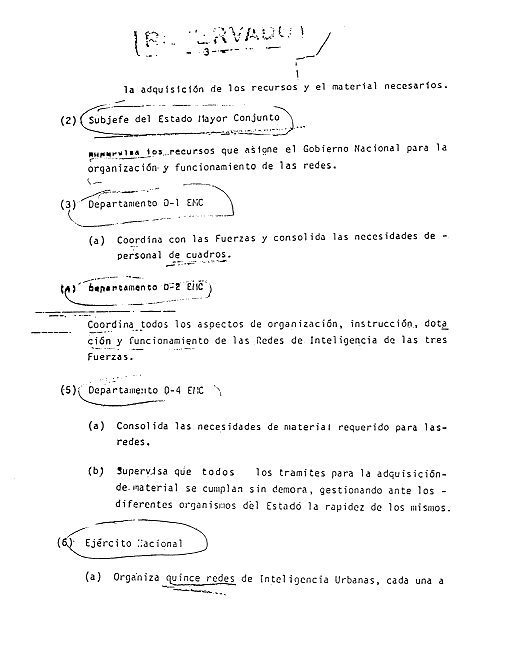 RESERVADO
- 3 -
la adquisición de los recursos y el material necesarios.
(2) Subjefe del Estado Mayor Conjunto
Supervisa los recursos que asigne el Gobierno Nacional para la
organización y funcionamiento de las redes.
(3) Departamento D-1 EMC
(a) Coordina con las Fuerzas y consolida las necesidades de -
personal de cuadros.
(4) Departamento D-2 EMC
Coordina todos los aspectos de organización, instrucción, dota
ción y funcionamiento de las Redes de Inteligencia de las tres
Fuerzas.
(5) Departamento D-4 EMC
(a) Consolida las necesidades de material requerido para las-
redes.
(b) Supervisa que todos los tramites para la adquisición-
de material se cumplan sin demora, gestionando ante los -
diferentes organismos del Estado la rapidez de los mismos.
(6) Ejército Nacional
(a) Organiza quince redes de Inteligencia Urbanas, cada una a